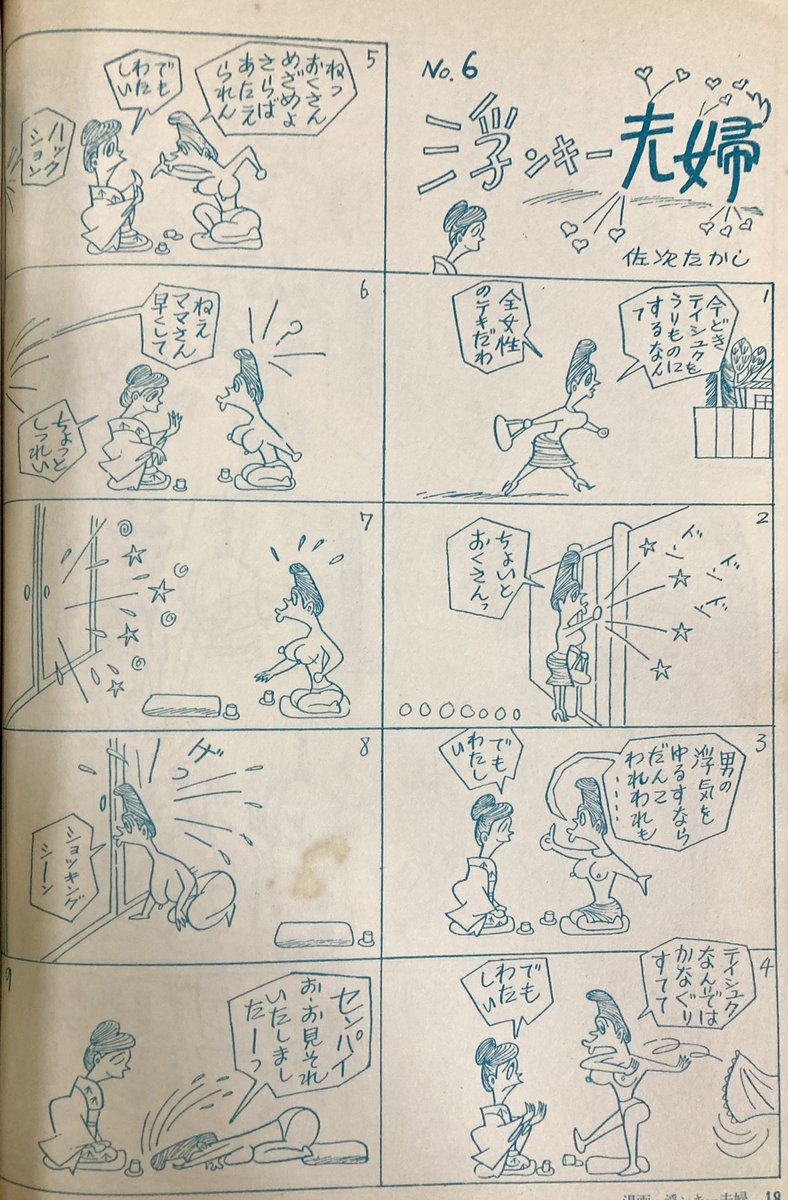 No.6
浮ンキー夫婦
佐次たかし
1
今どき
テイシュクを
うりものに
するなん
て
全女性
のテキだわ
2
ちょいと
おくさんっ
ドン
ドン
ドン
3
男の
浮気を
ゆるすなら
だんこ
われわれも
……
でも
わたし
い
4
テイシュク
なんでは
かなぐり
すてて
でも
わた
しい
5
ねっ
おくさん
めざめよ
さらば
あたえ
られん
でも
わた
しい
ハック
ション
6
ねえ
ママさん
早くして
ちょっと
しつれい
7
8
ゲッ
ショッキング
シーン
9
センパイ
お・お見それ
いたしまし
たーっ
漫画 浮ンキー夫婦 18